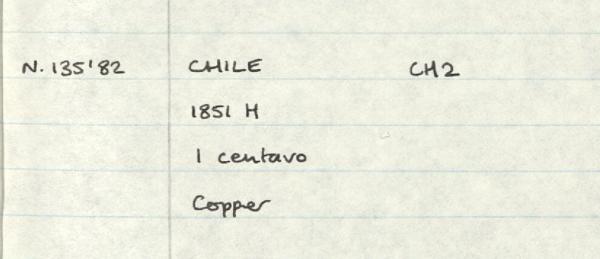 N. 135'82 CHILE CH2
1851 H
1 centavo
Copper